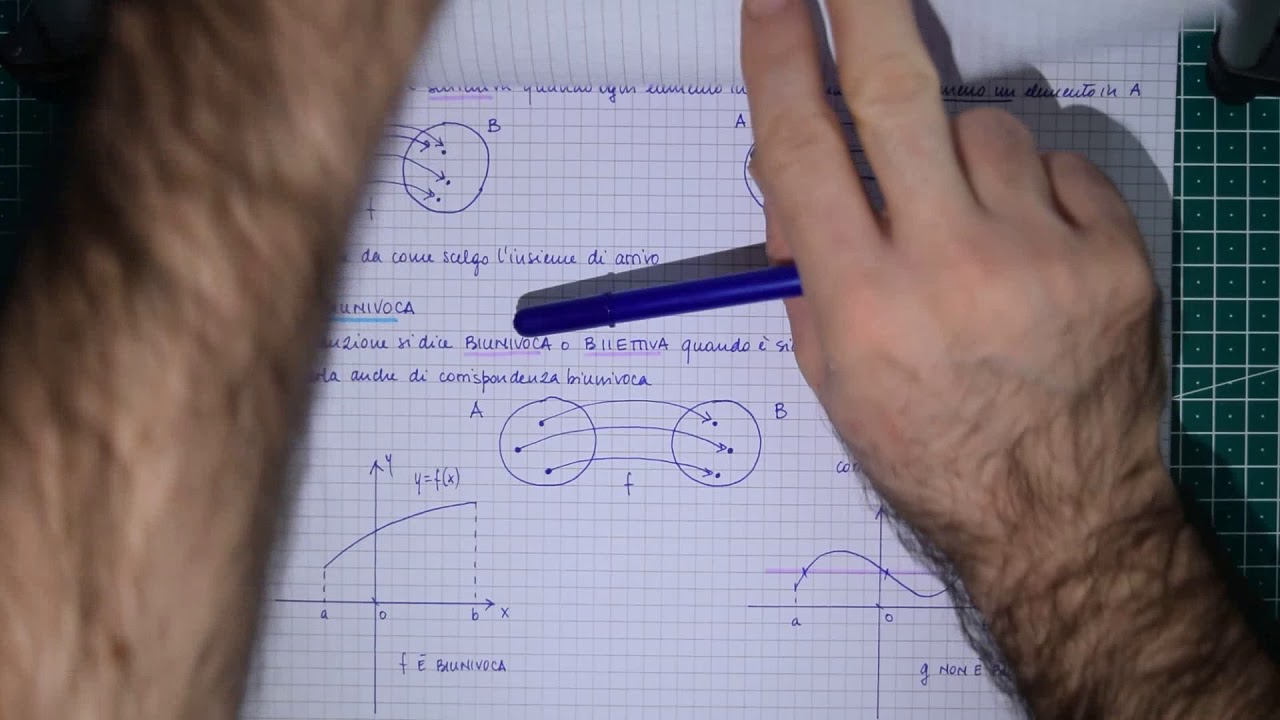 quando ogni elemento in
un elemento in A
B
A
f
da come scelgo l'insieme di arrivo
UNIVOCA
si dice BIUNIVOCA o BIIETTIVA quando è
anche di corrispondenza biunivoca
A
B
f
y
y=f(x)
a
o
b
x
a
o
f È BIUNIVOCA
g NON È